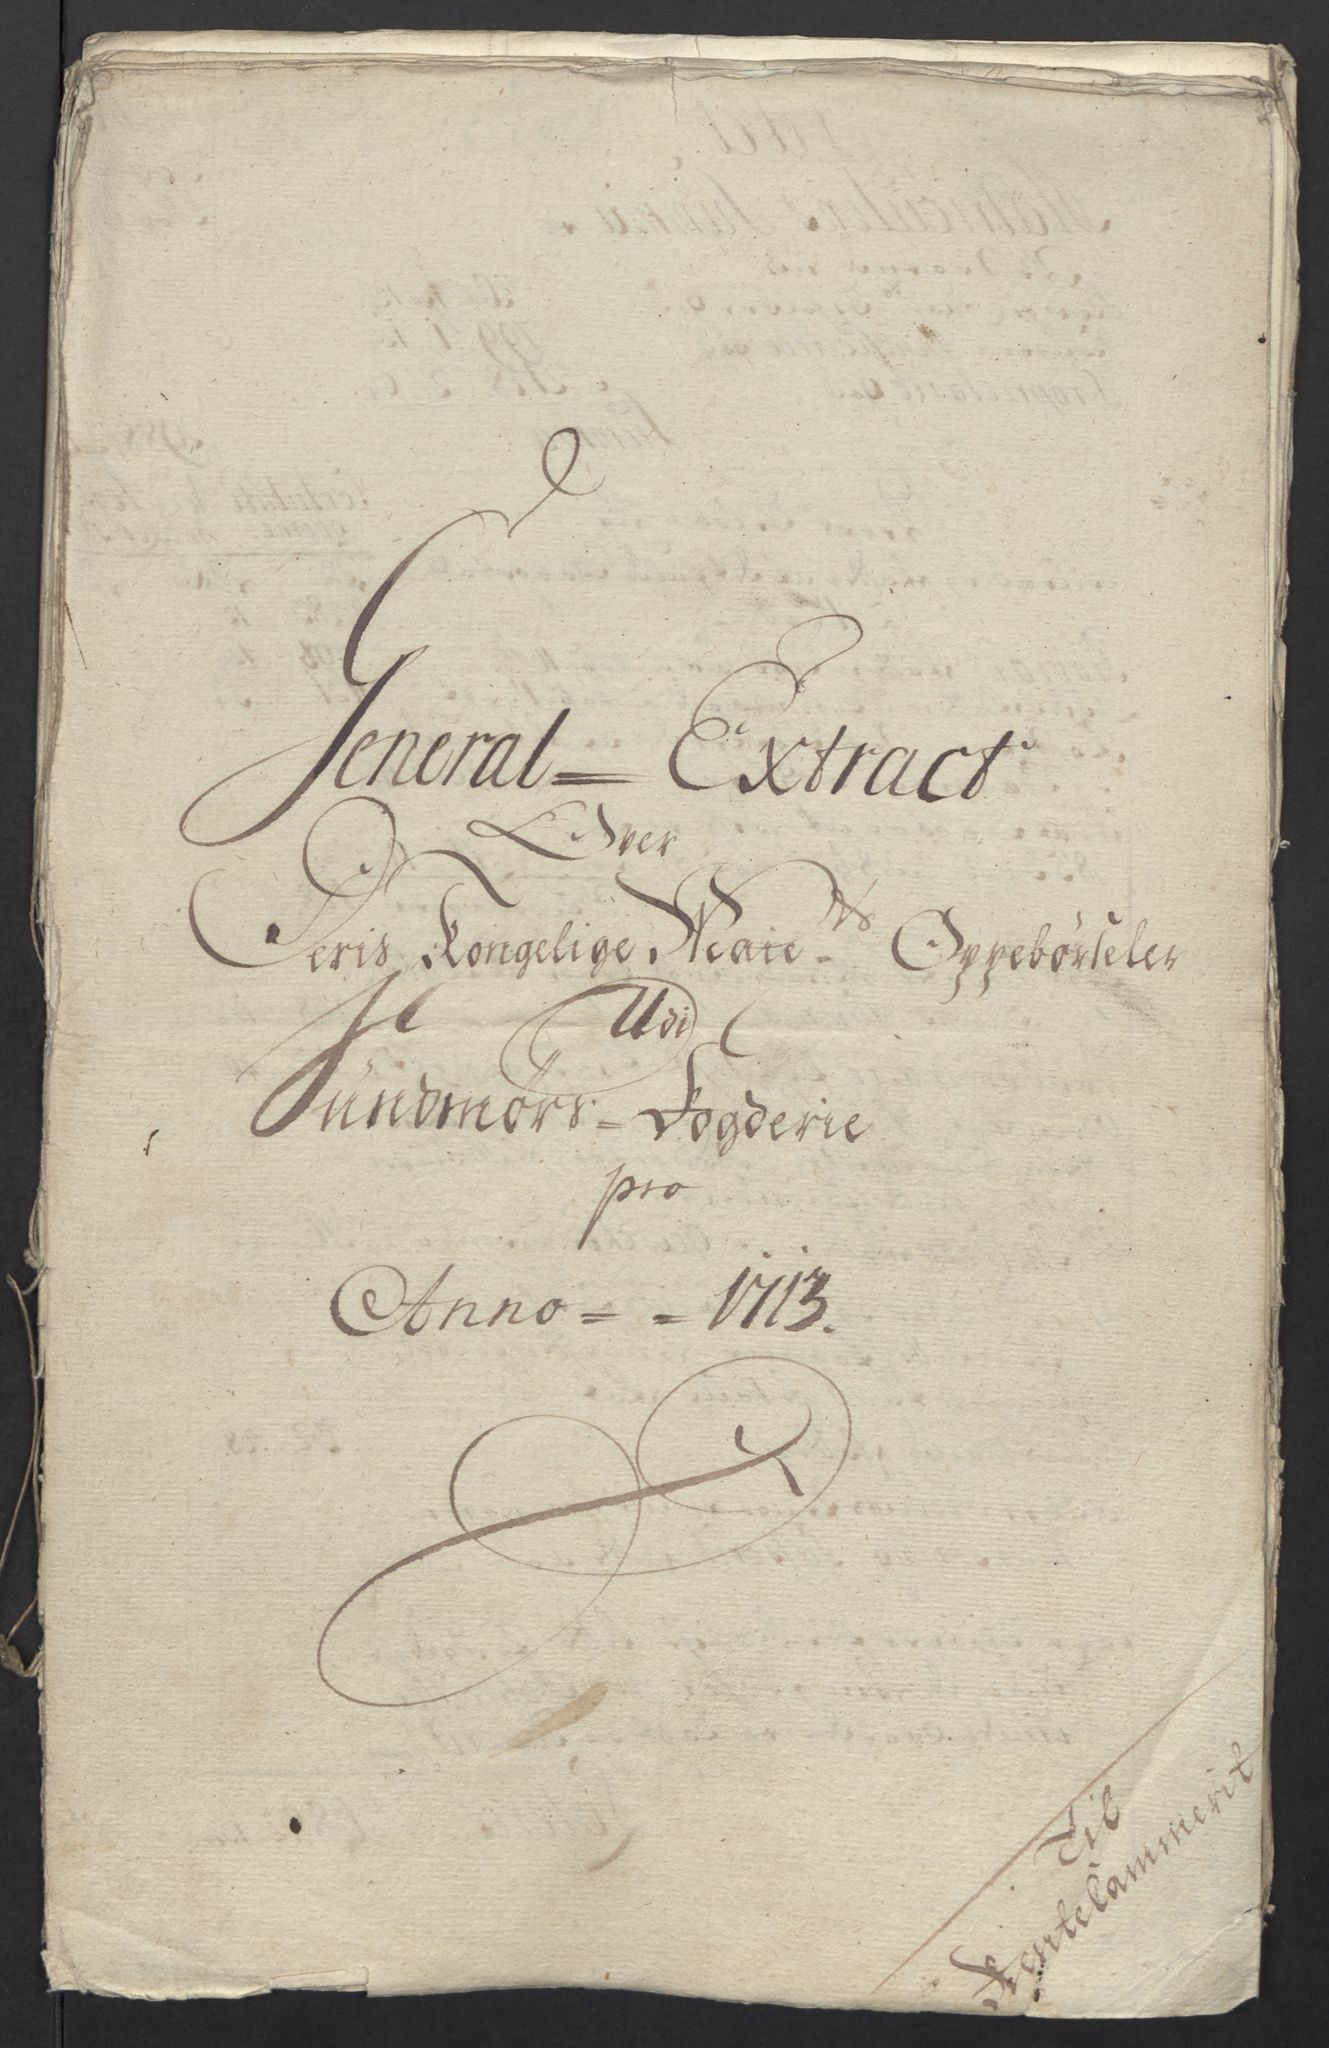 General = Extract
Over
Deris Kongelige Maie^ts Oppebørseler
Udi
Sundmørs = Fogderie
pro
Anno = = 1713.
Til
Rentekammerit